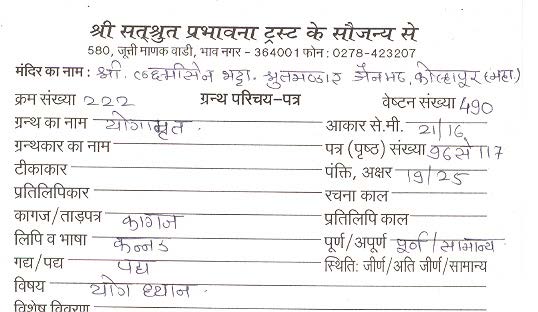 श्री सत्श्रुत प्रभावना ट्रस्ट के सौजन्य से
580, जूत्ती माणक वाडी, भाव नगर - 364001 फोन : 0278-423207
मंदिर का नाम : श्री. लक्ष्मीसेन भट्टा. श्रुतभण्डार जैनमठ, कोल्हापुर (महा.)
क्रम संख्या 222 ग्रन्थ परिचय-पत्र वेष्टन संख्या 490
ग्रन्थ का नाम योगामृत. आकार से.मी. 21/16
ग्रन्थकार का नाम पत्र (पृष्ठ) संख्या 96 से 117
टीकाकार पंक्ति, अक्षर 19/25
प्रतिलिपिकार रचना काल
कागज/ताड़पत्र कागज प्रतिलिपि काल
लिपि व भाषा कन्नड पूर्ण/अपूर्ण पूर्ण/सामान्य
गद्य/पद्य पद्य स्थिति: जीर्ण/अति जीर्ण/सामान्य
विषय योग ध्यान.
विशेष विवरण